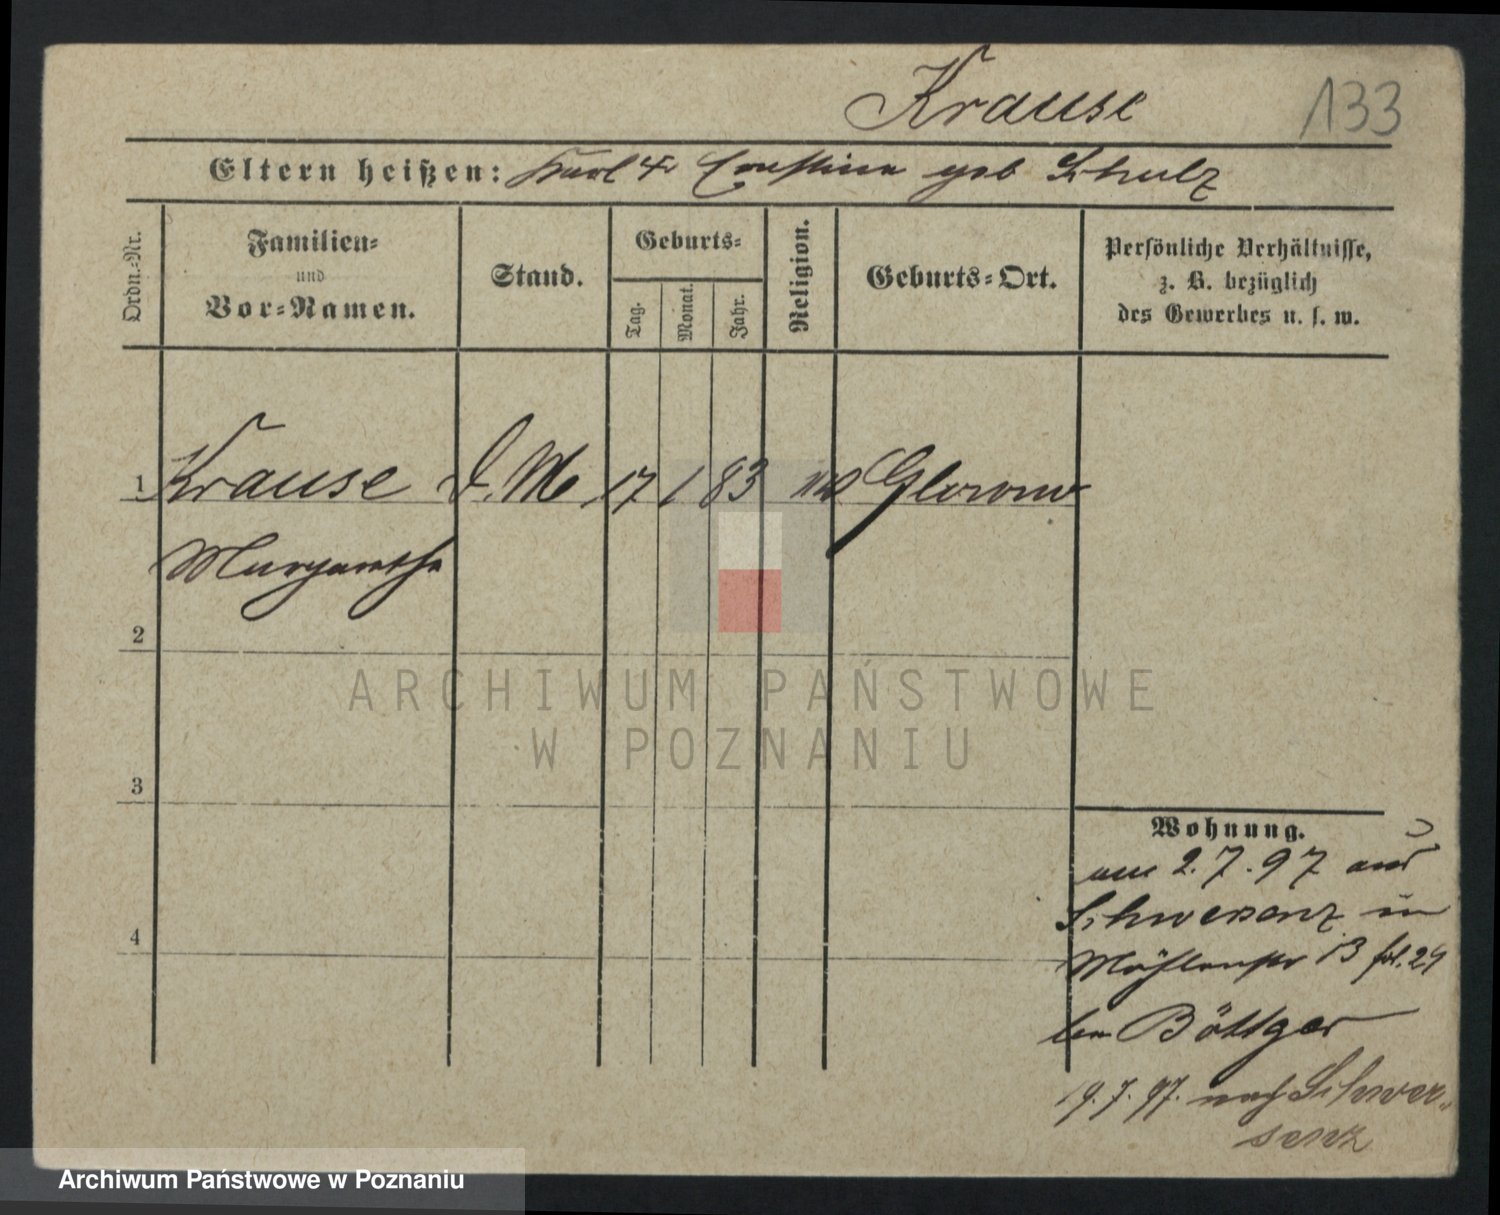 Krause
133
Eltern heißen: Karl & Ernstine geb Schulz
Ordn.-Nr.
Familien-
und
Vor-Namen.
Stand.
Geburts-
Tag.
Monat.
Jahr.
Religion.
Geburts-Ort.
Persönliche Verhältnisse,
z. B. bezüglich
des Gewerbes u. s. w.
1 Krause D. M. 17 1 83 Glowno
Margarethe
2
3
4
Wohnung.
am 2.7.97 aus
Schwersenz in
Mühlenstr 13 24
bei Böttger
19.7.97. nach Schwer-
senz
ARCHIWUM PAŃSTWOWE
W POZNANIU
Archiwum Państwowe w Poznaniu